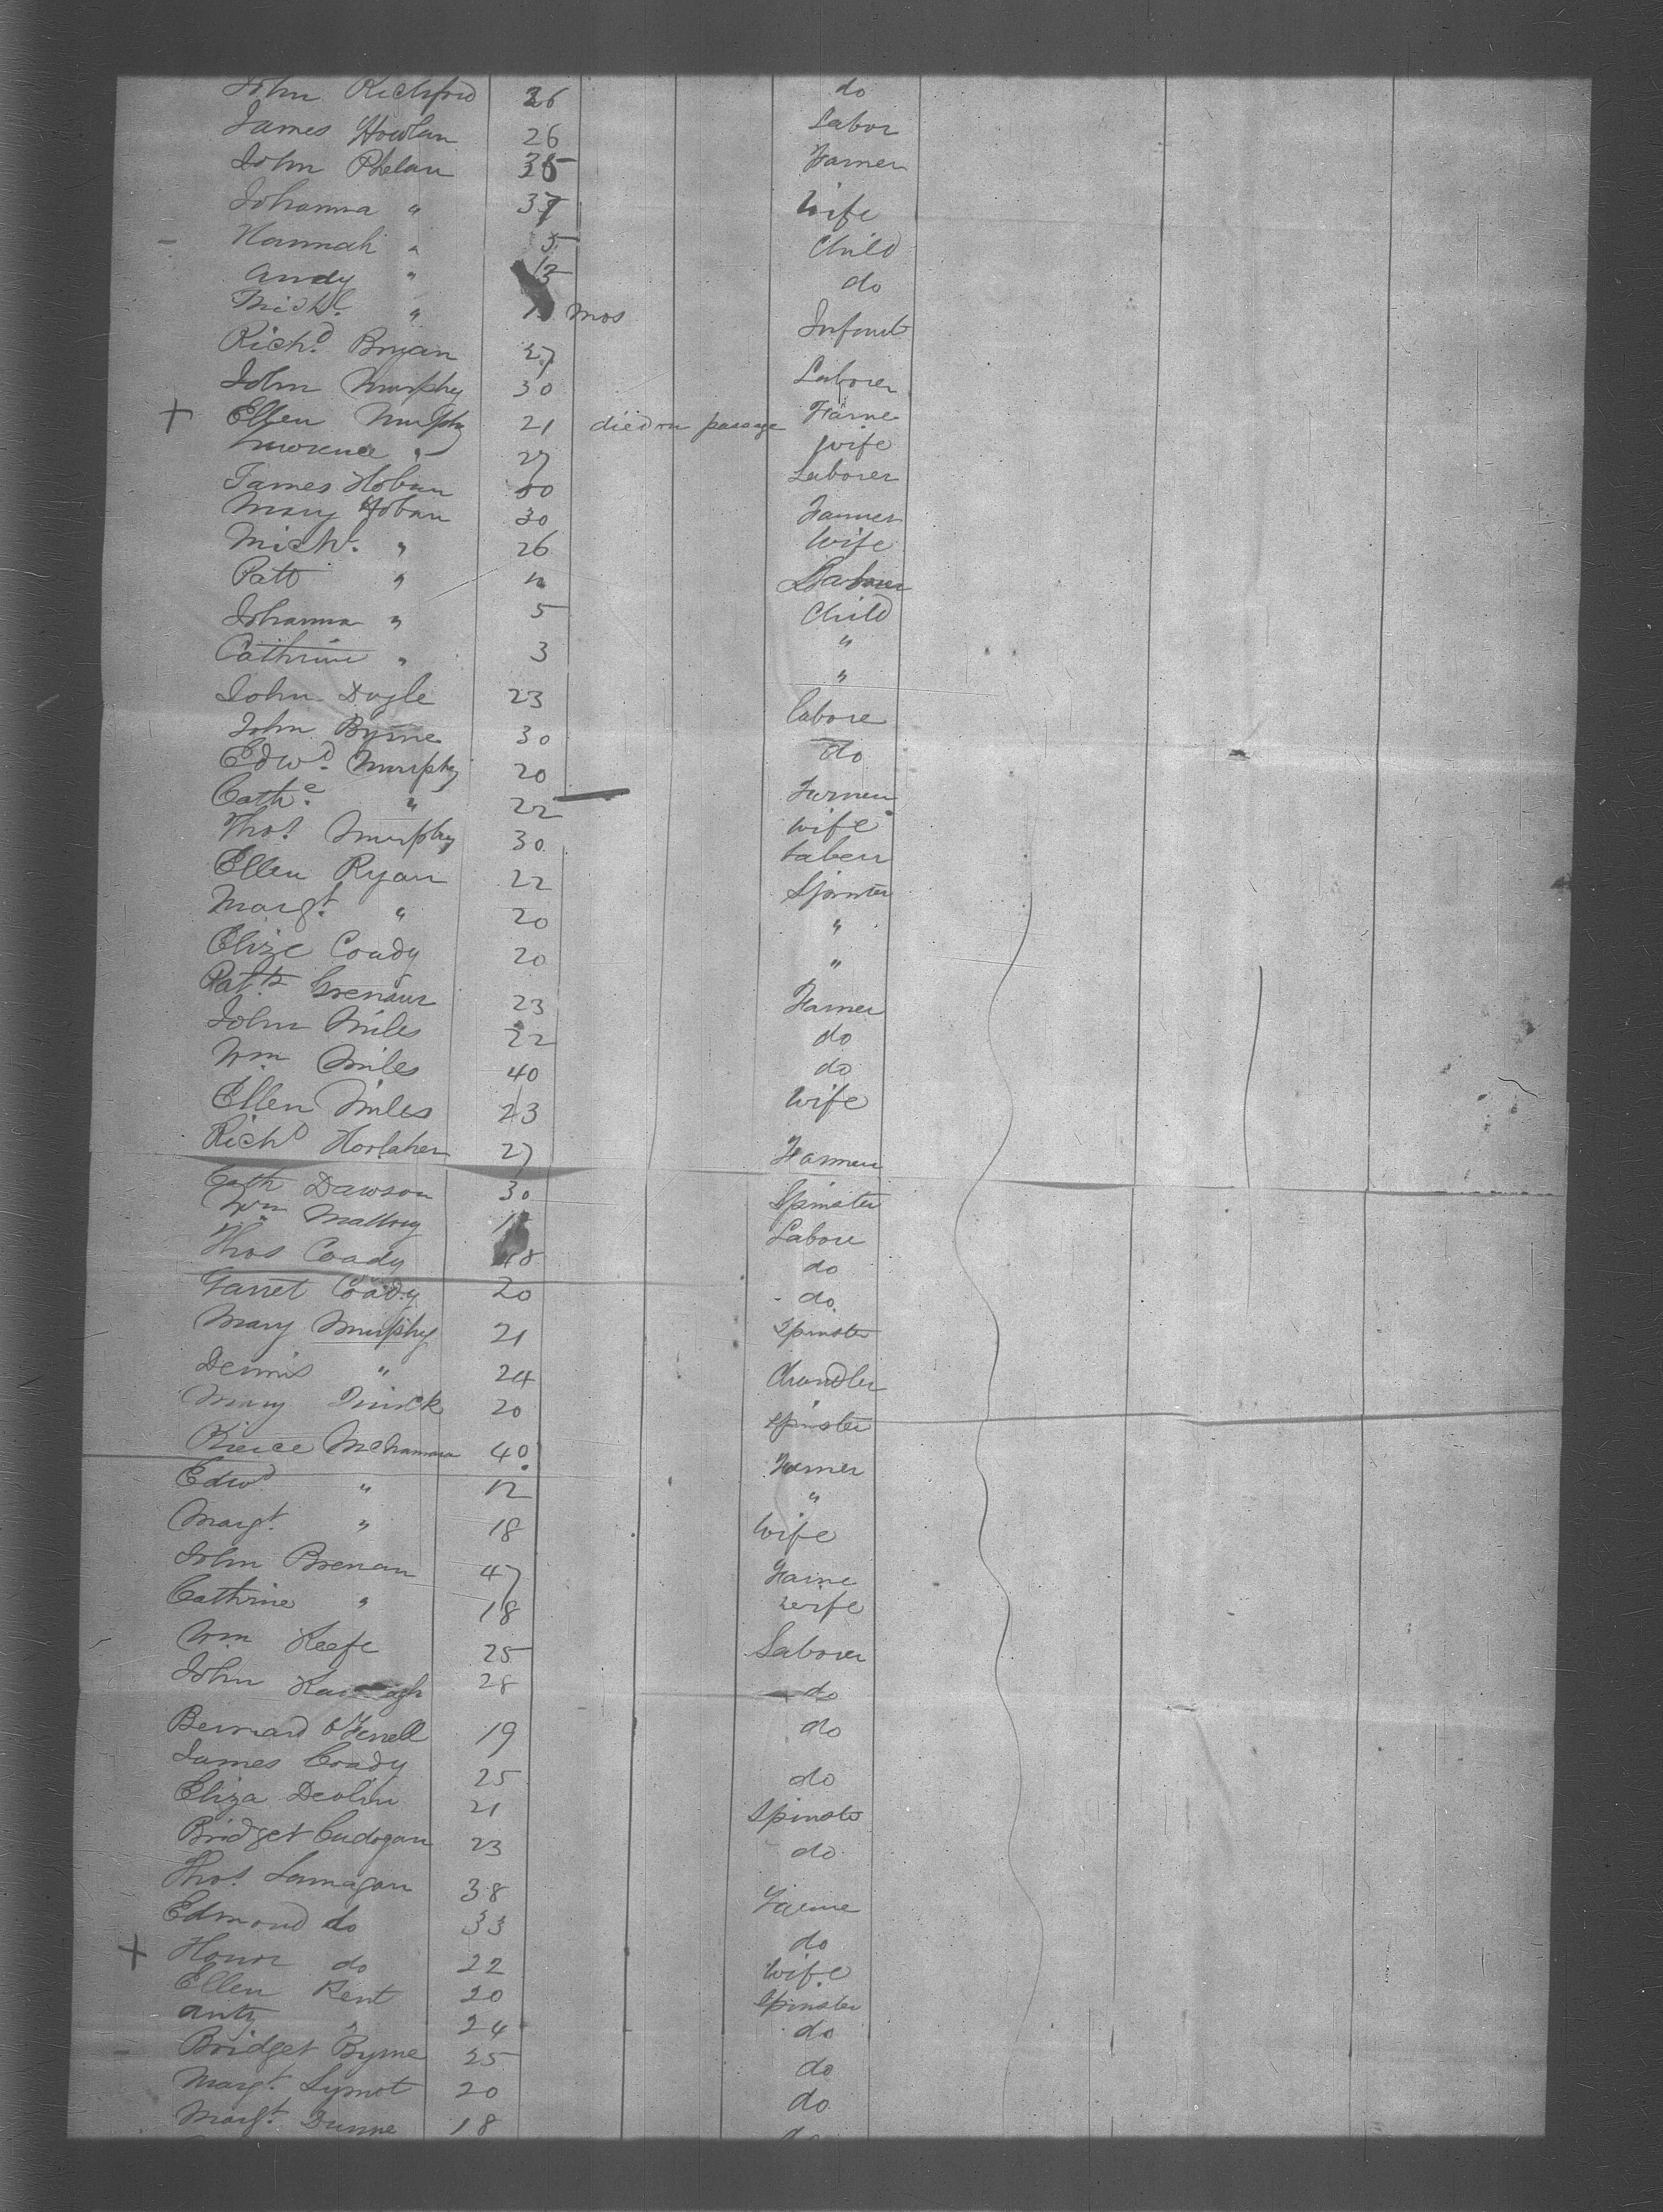 John Richford 26 do
James Howlan 26 Labor
John Phelan 35 Farmer
Johanna " 37 Wife
Hannah " 5 Child
Andy " 3 do
Michl. " mos Infant
Richd. Bryan 27
John Murphy 30 Laborer
+ Ellen Murphy 21 died on passage Farme
Lawrence " 27 Wife
James Hoban 30 Laborer
Mary Hoban 30 Farmer
Michl. " 26 Wife
Patt " " Labourer
Johanna " 5 Child
Cathrine " 3 "
"
John Doyle 23 labore
John Byrne 30 do
Edwd. Murphy 20
Cathe. " 22 Farmer
Thos. Murphy 30 Wife
Laberr
Ellen Ryan 22 Spinster
Margt. " 20 "
Elize Coady 20 "
Patk 23 Farmer
John Miles 22 do
Wm Miles 40 do
Ellen Miles 23 Wife
Richd Horlahen 27 Farmer
Cath Dawson 30 Spinster
Wm Mallory Labore
Thos Coady 48 do
Garret Coady 20 do
Mary Murphy 21 Spinster
Dennis " 24 Chandler
Mary 20 Spinster
Pierce McNamara 40 Farmer
Edwd " 12 "
Margt. " 18 Wife
John Brenan 47 Farme
Cathrine " 18 Wife
Wm Keefe 25 Laborer
John Kavanagh 28 do
Bernard O'Ferrell 19 do
James Coady 25 do
Eliza Devlin 21 Spinste
Bridget Cudogan 23 do
Thos. Lannagan 38 Farme
Edmond do 33 do
+ Honor do 22 Wife
Ellen Kent 20 Spinster
Anty " 24 do
Bridget Byrne 25 do
Margt. Lymot 20 do
Margt. Dunne 18